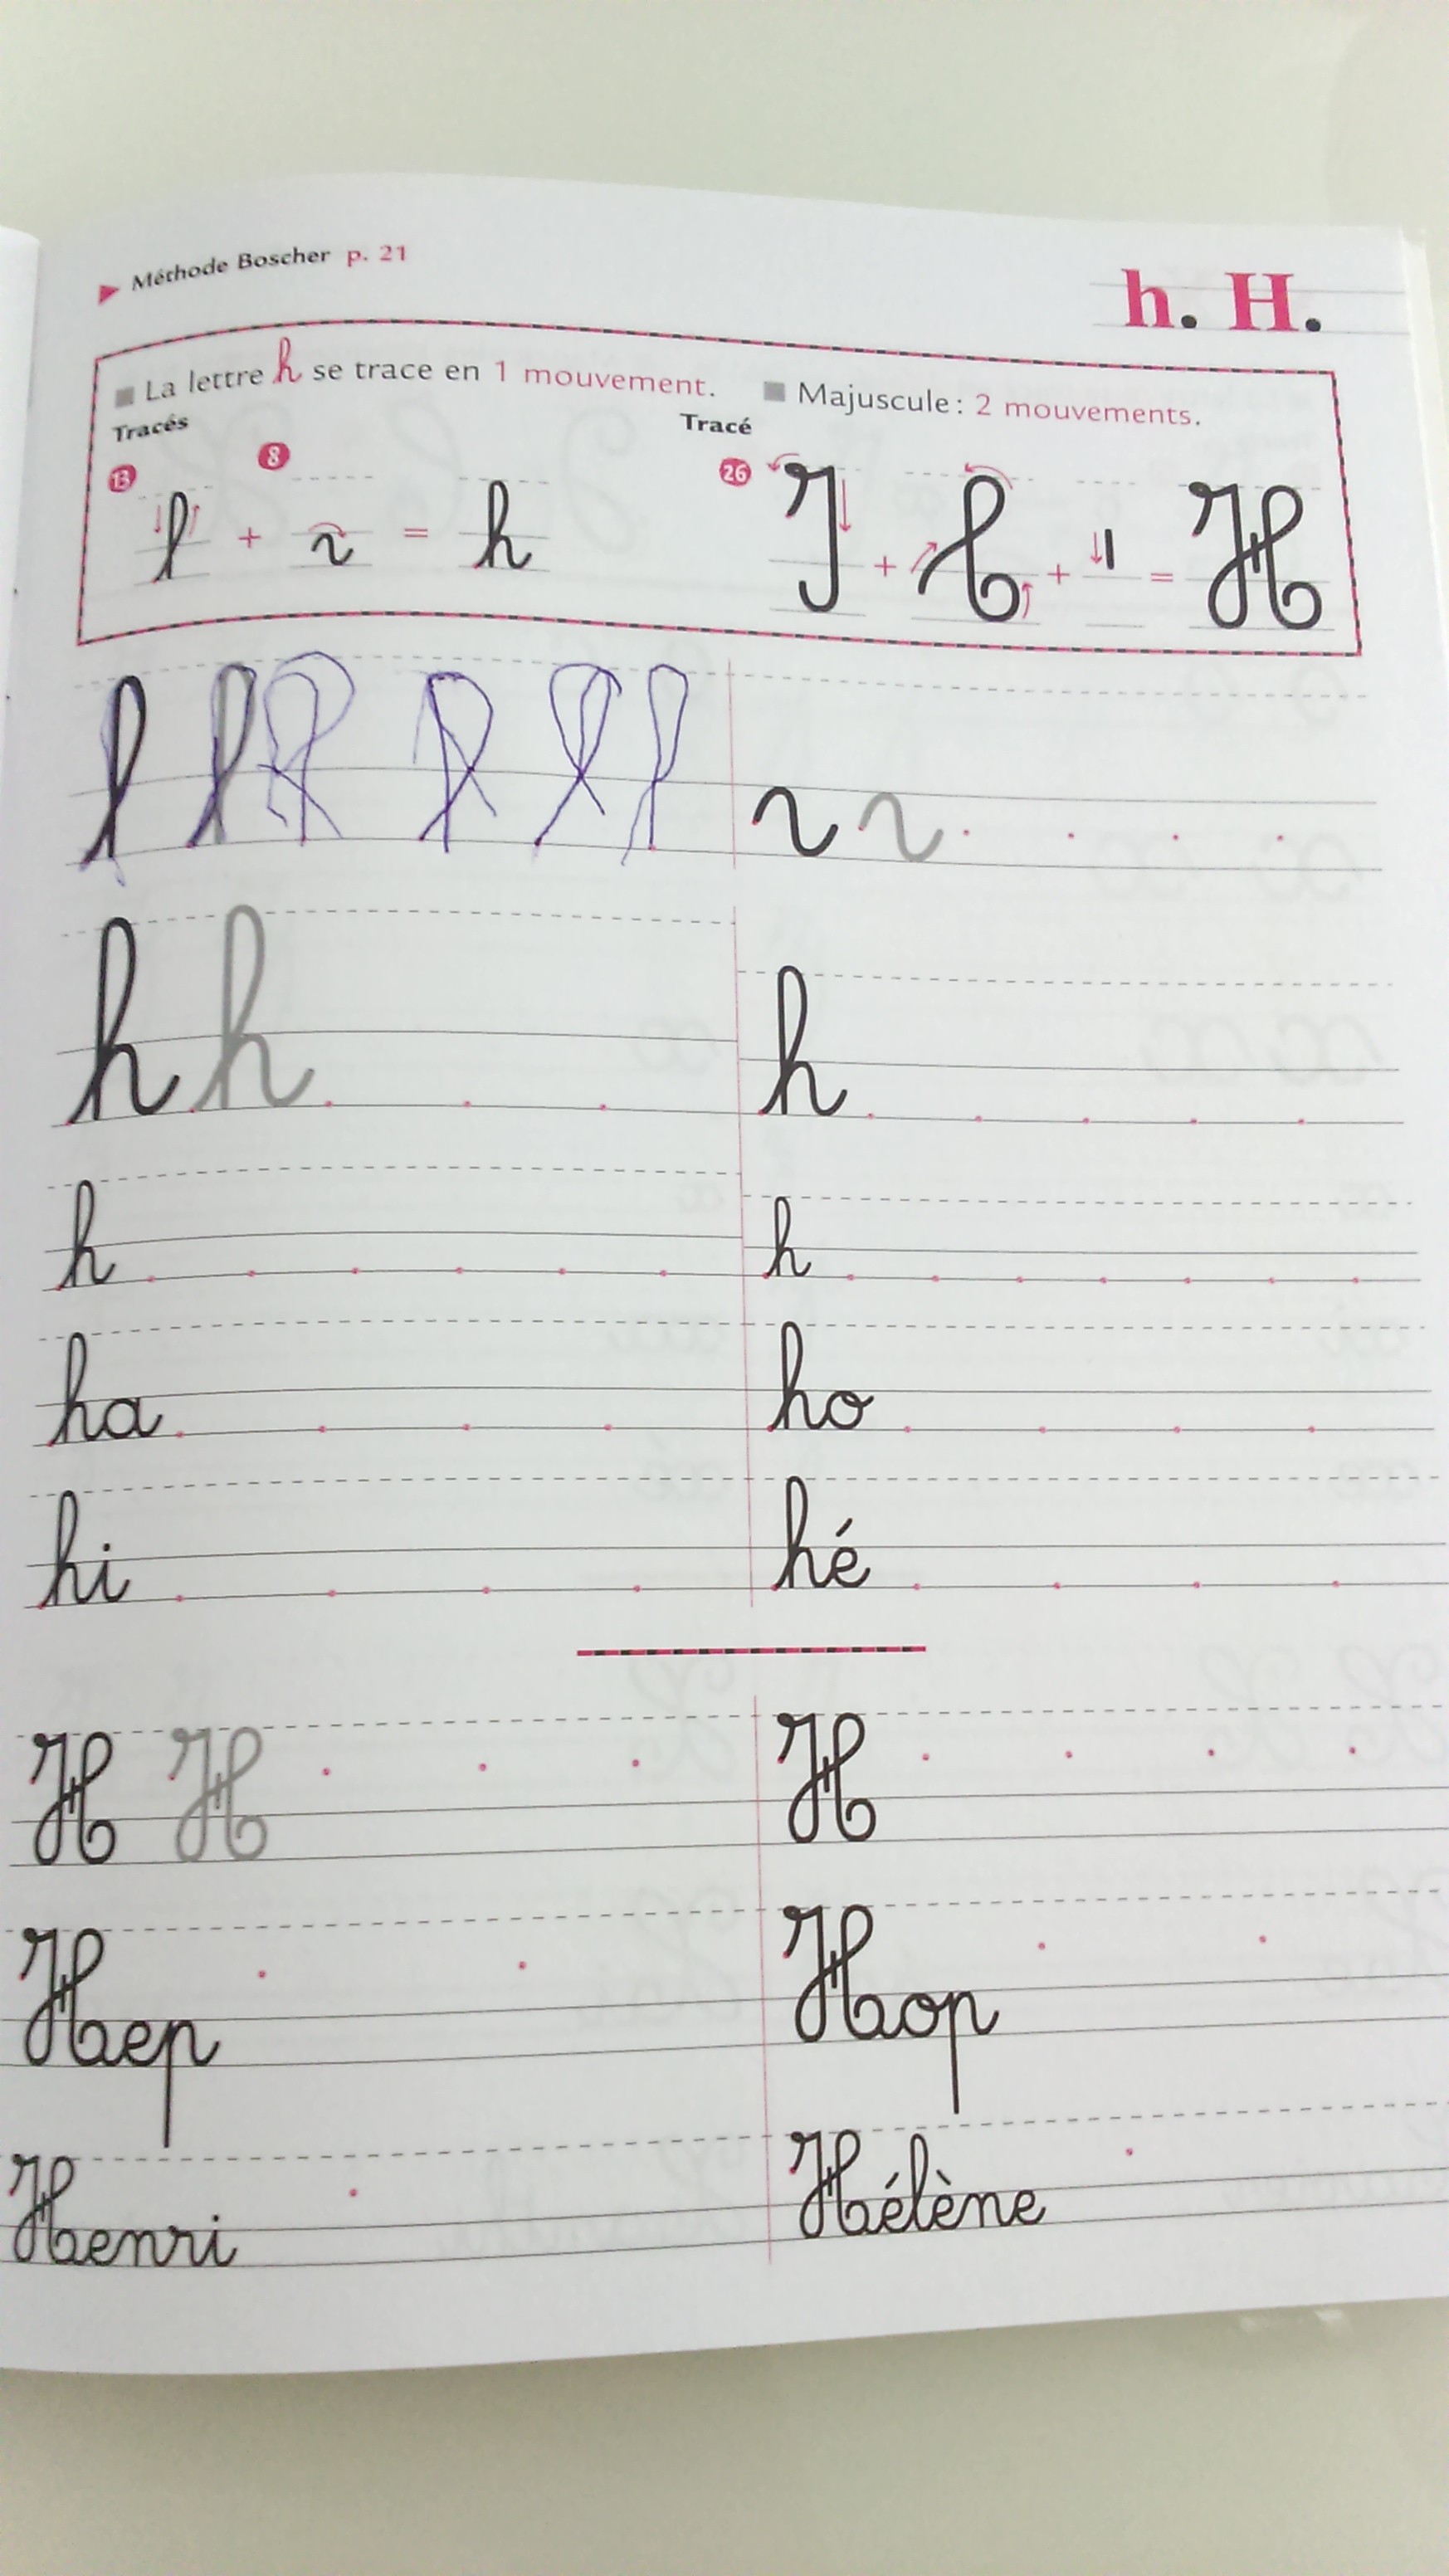 Méthode Boscher p. 21
h. H.
La lettre h se trace en 1 mouvement.
Majuscule : 2 mouvements.
Tracés
Tracé
13 8 26
+ = h
+ + = H
h h h
h h
ha ho
hi hé
H H H
Hep Hop
Henri Hélène